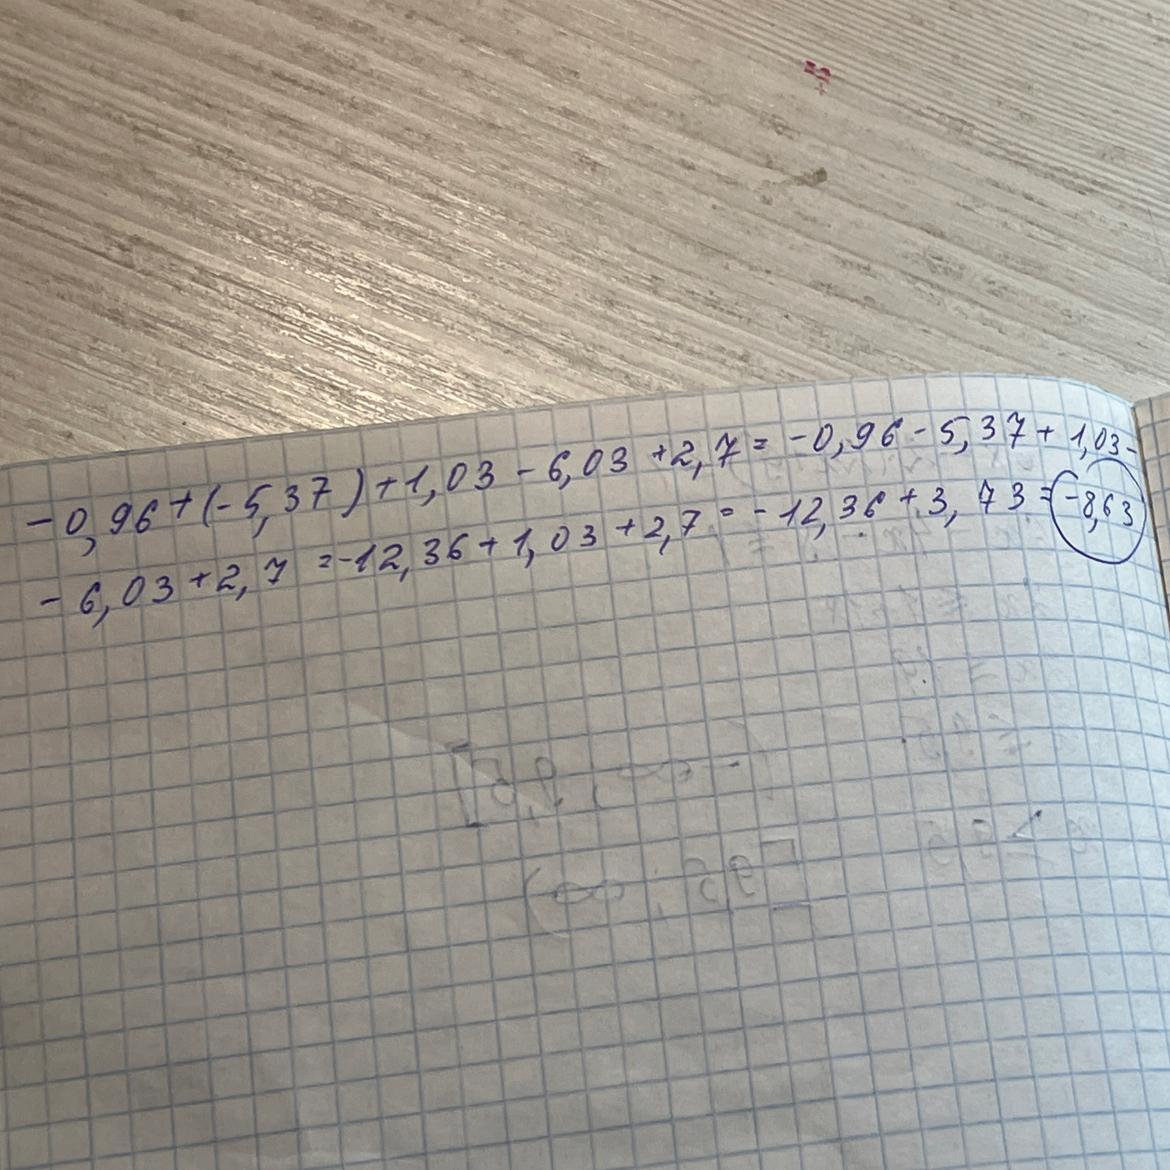 -0,96+(-5,37)+1,03-6,03+2,7=-0,96-5,37+1,03-
-6,03+2,7=-12,36+1,03+2,7=-12,36+3,73=-8,63